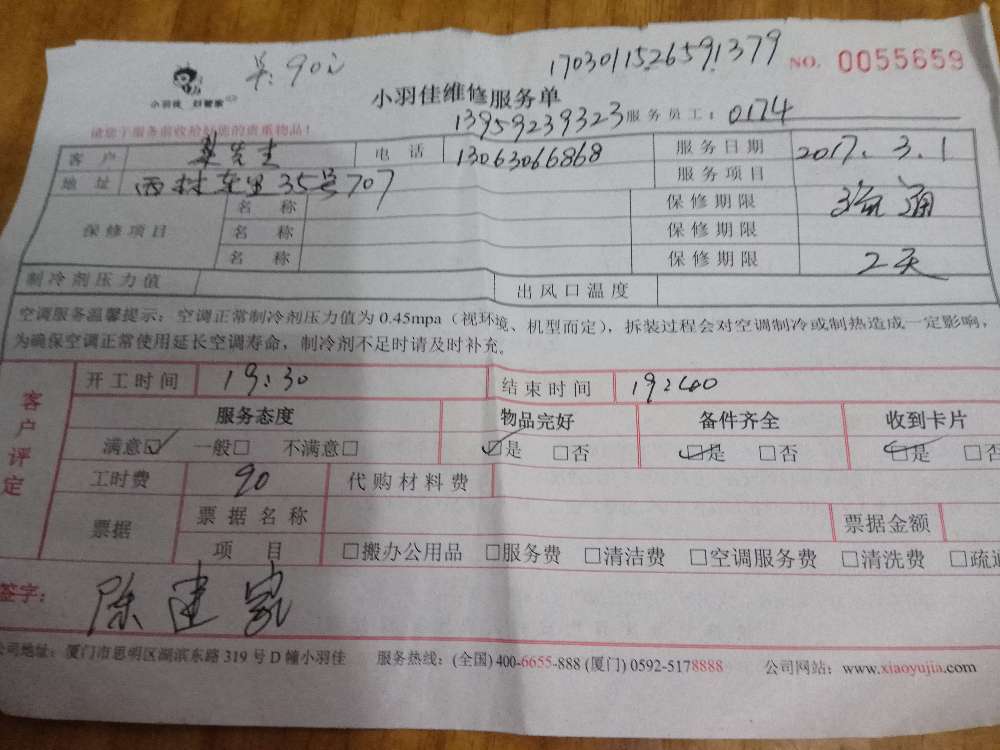 90 170301152691379 NO. 0055659
小羽佳 好管家
小羽佳维修服务单
请您于服务前收拾好您的贵重物品！ 13959239323 服务员工：0174
客户 先生 电话 13063066868 服务日期 2017.3.1
地址 西村东里35号707 服务项目
名称 保修期限 疏通
保修项目 名称 保修期限
名称 保修期限 2天
制冷剂压力值 出风口温度
空调服务温馨提示：空调正常制冷剂压力值为0.45mpa（视环境、机型而定），拆装过程会对空调制冷或制热造成一定影响，
为确保空调正常使用延长空调寿命，制冷剂不足时请及时补充。
客户评定
开工时间 19:30 结束时间 19:40
服务态度 物品完好 备件齐全 收到卡片
满意☑ 一般□ 不满意□ ☑是 □否 ☑是 □否 ☑是 □否
工时费 90 代购材料费
票据 票据名称 票据金额
项目 □搬办公用品 □服务费 □清洁费 □空调服务费 □清洗费 □疏通
签字： 陈建家
公司地址：厦门市思明区湖滨东路319号D幢小羽佳 服务热线：(全国) 400-6655-888 (厦门) 0592-5178888 公司网站：www.xiaoyujia.com